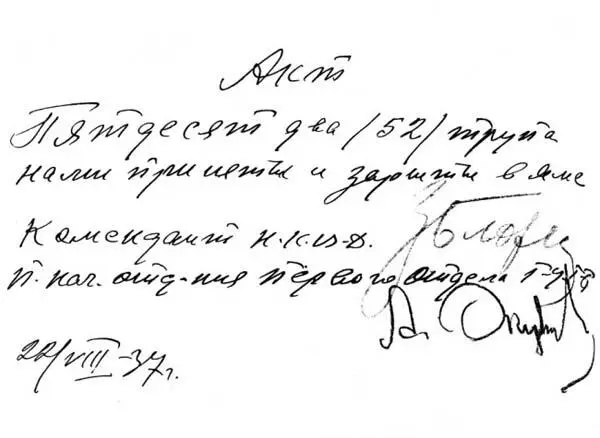 Акт
Пятдесят два /52/ трупа
нами приняты и зарыты в яме
Комендант н.к.в.д.
П. нач. отд-ния первого отдела
22/VIII-37 г.